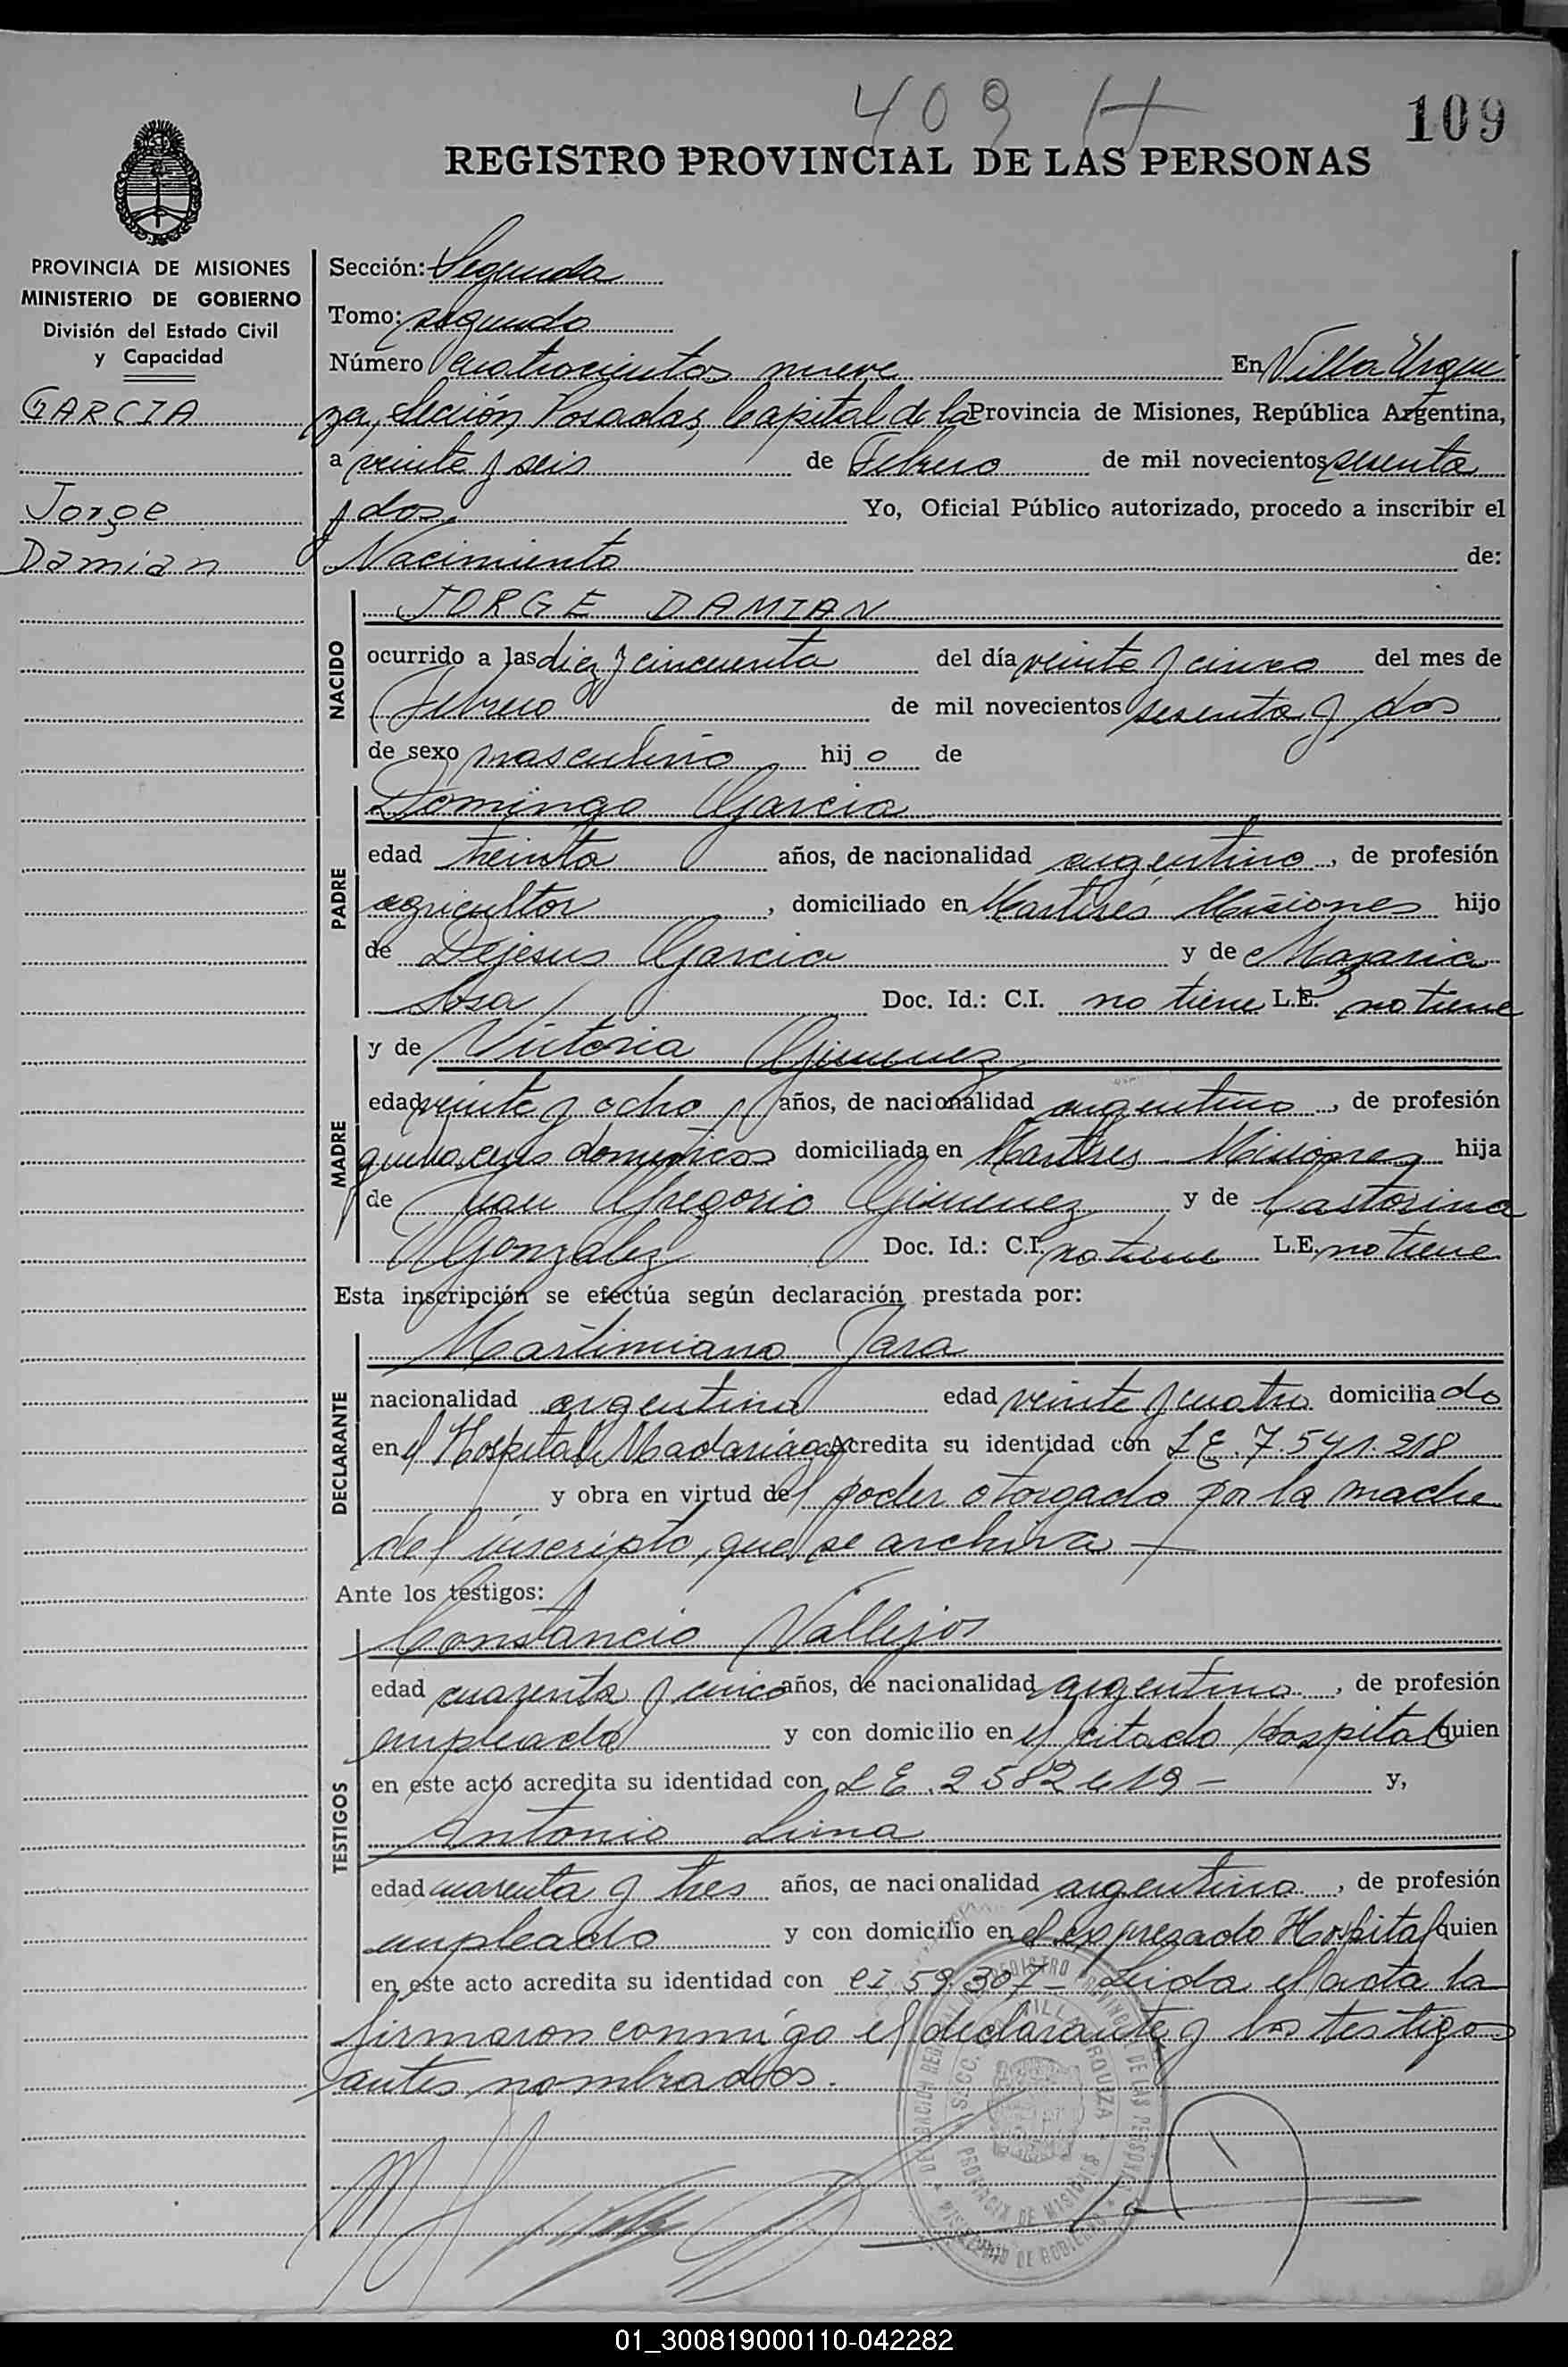 409 H
109
REGISTRO PROVINCIAL DE LAS PERSONAS
PROVINCIA DE MISIONES
MINISTERIO DE GOBIERNO
División del Estado Civil
y Capacidad
GARCIA
Jorge
Damian
Sección: Segunda
Tomo: segundo
Número cuatrocientos nueve En Villa Urqui
za, Sección, Posadas, Capital de la Provincia de Misiones, República Argentina,
a veinte y seis de Febrero de mil novecientos sesenta
y dos Yo, Oficial Público autorizado, procedo a inscribir el
Nacimiento de:
NACIDO
JORGE DAMIAN
ocurrido a las diez y cincuenta del día veinte y cinco del mes de
Febrero de mil novecientos sesenta y dos
de sexo masculino hijo de
PADRE
Domingo Garcia
edad treinta años, de nacionalidad argentino, de profesión
agricultor, domiciliado en Martires Misiones hijo
de Dejesus Garcia y de
Sosa Doc. Id.: C.I. no tiene L.E. no tiene
MADRE
y de Victoria Gimenez
edad veinte y ocho años, de nacionalidad argentina, de profesión
quehaceres domesticos domiciliada en Martires Misiones hija
de Juan Gregorio Gimenez y de Castorina
Gonzalez Doc. Id.: C.I. no tiene L.E. no tiene
Esta inscripción se efectúa según declaración prestada por:
DECLARANTE
Martimiano Jara
nacionalidad argentina edad veinte y cuatro domiciliado
en el Hospital Madariaga Acredita su identidad con L E. 7.541.218
y obra en virtud del poder otorgado por la madre
del inscripto, que se archiva
Ante los testigos:
TESTIGOS
Constancio Vallejos
edad cuarenta y cinco años, de nacionalidad argentina, de profesión
empleado y con domicilio en el citado Hospital quien
en este acto acredita su identidad con L E. 2582419 - y,
Antonio Lima
edad cuarenta y tres años, de nacionalidad argentino, de profesión
empleado y con domicilio en el expresado Hospital quien
en este acto acredita su identidad con CI 59.307 - Leida el acta la
firmaron conmigo el declarante y los testigos
antes nombrados.
01_300819000110-042282